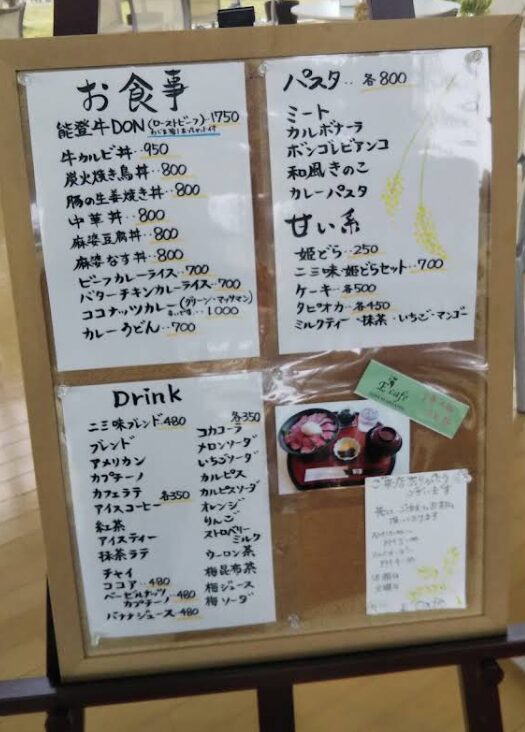 お食事
能登牛DON(ローストビーフ)‥1750
牛カルビ丼‥950
炭火焼き鳥丼‥800
豚の生姜焼き丼‥800
中華丼‥800
麻婆豆腐丼‥800
麻婆なす丼‥800
ビーフカレーライス‥700
バターチキンカレーライス‥700
ココナッツカレー(グリーン・マッサマン)‥1000
カレーうどん‥700
パスタ‥各800
ミート
カルボナーラ
ボンゴレビアンコ
和風きのこ
カレーパスタ
甘い系
姫どら‥250
二三味・姫どらセット‥700
ケーキ‥各500
タピオカ‥各450
ミルクティー・抹茶・いちご・マンゴー
Drink
二三味ブレンド‥480
ブレンド
アメリカン
カプチーノ
カフェラテ 各350
アイスコーヒー
紅茶
アイスティー
抹茶ラテ
チャイ
ココア‥480
ヘーゼルナッツ
カプチーノ‥480
バナナジュース‥480
各350
コカコーラ
メロンソーダ
いちごソーダ
カルピス
カルピスソーダ
オレンジ
りんご
ストロベリー
ミルク
ウーロン茶
梅昆布茶
梅ジュース
梅ソーダ
ご来店ありがとう
ございます